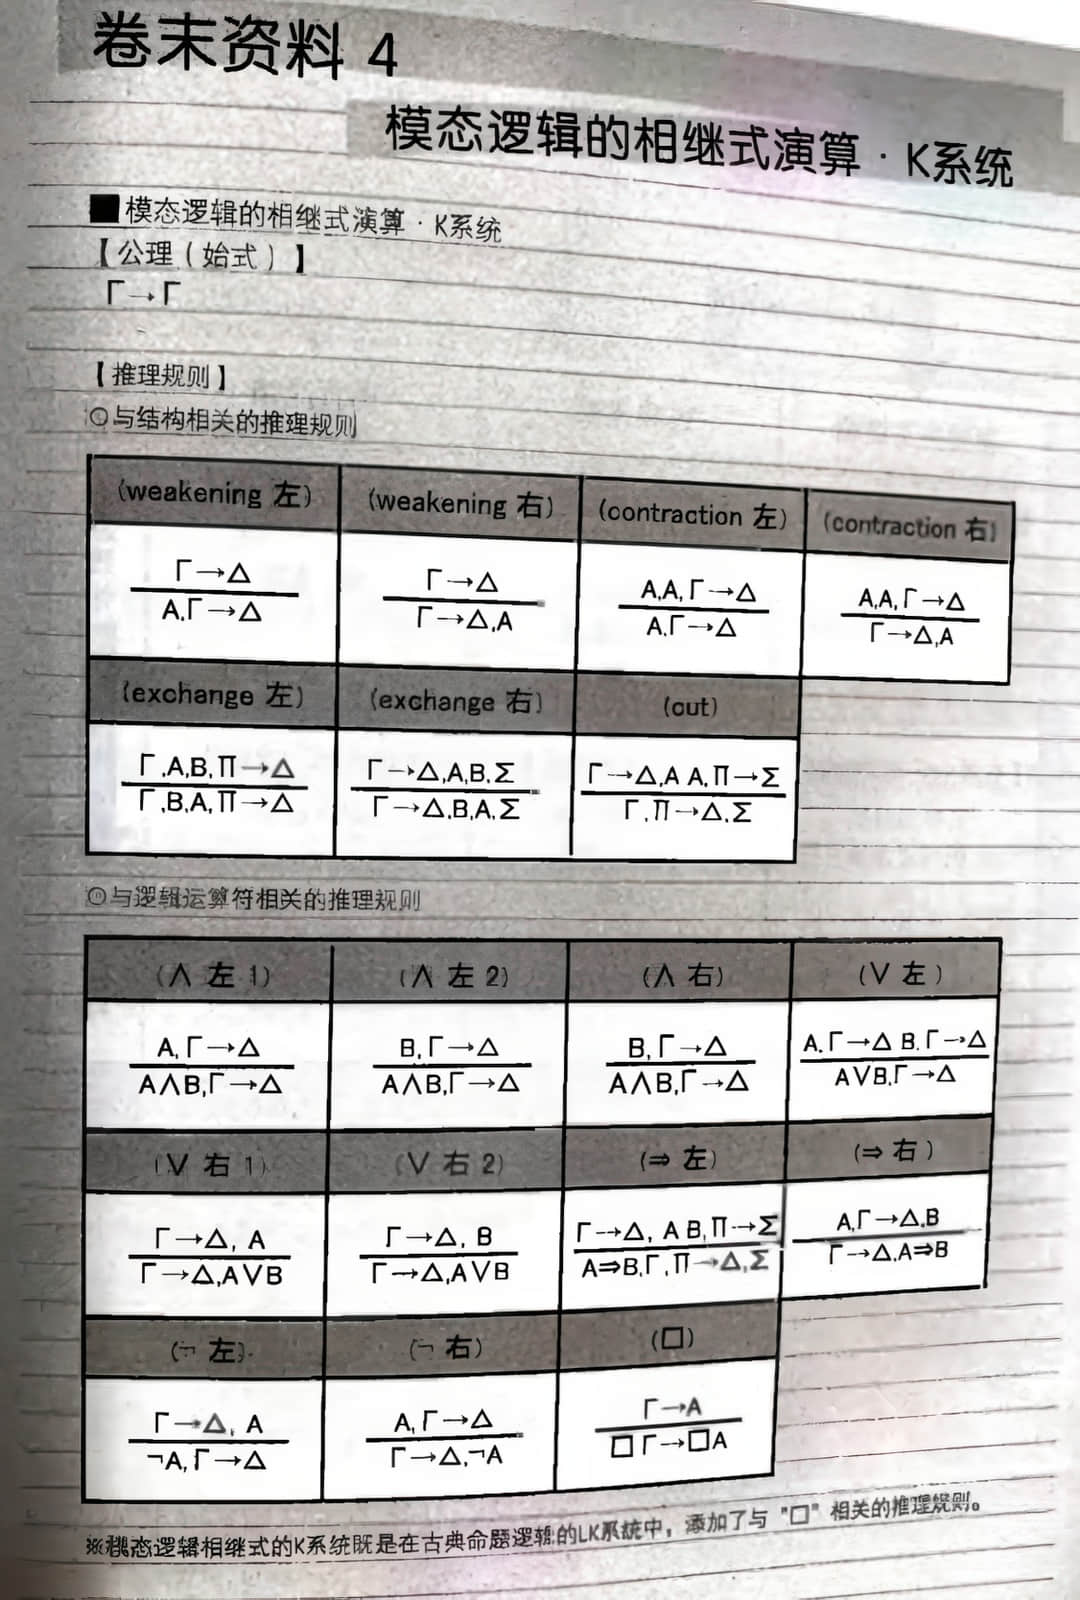 卷末资料 4
模态逻辑的相继式演算・K系统
■模态逻辑的相继式演算・K系统
【公理（始式）】
Γ→Γ
【推理规则】
◎与结构相关的推理规则
(weakening 左) (weakening 右) (contraction 左) (contraction 右)
Γ→Δ Γ→Δ A,A,Γ→Δ A,A,Γ→Δ
A,Γ→Δ Γ→Δ,A A,Γ→Δ Γ→Δ,A
(exchange 左) (exchange 右) (cut)
Γ,A,B,Π→Δ Γ→Δ,A,B,Σ Γ→Δ,A A,Π→Σ
Γ,B,A,Π→Δ Γ→Δ,B,A,Σ Γ,Π→Δ,Σ
◎与逻辑运算符相关的推理规则
(∧ 左 1) (∧ 左 2) (∧ 右) (∨ 左)
A,Γ→Δ B,Γ→Δ B,Γ→Δ A,Γ→Δ B,Γ→Δ
A∧B,Γ→Δ A∧B,Γ→Δ A∧B,Γ→Δ A∨B,Γ→Δ
(∨ 右 1) (∨ 右 2) (⇒ 左) (⇒ 右)
Γ→Δ, A Γ→Δ, B Γ→Δ, A B,Π→Σ A,Γ→Δ,B
Γ→Δ,A∨B Γ→Δ,A∨B A⇒B,Γ,Π→Δ,Σ Γ→Δ,A⇒B
(¬ 左) (¬ 右) (□)
Γ→Δ, A A,Γ→Δ Γ→A
¬A,Γ→Δ Γ→Δ,¬A □Γ→□A
※模态逻辑相继式的K系统既是在古典命题逻辑的LK系统中，添加了与“□”相关的推理规则。